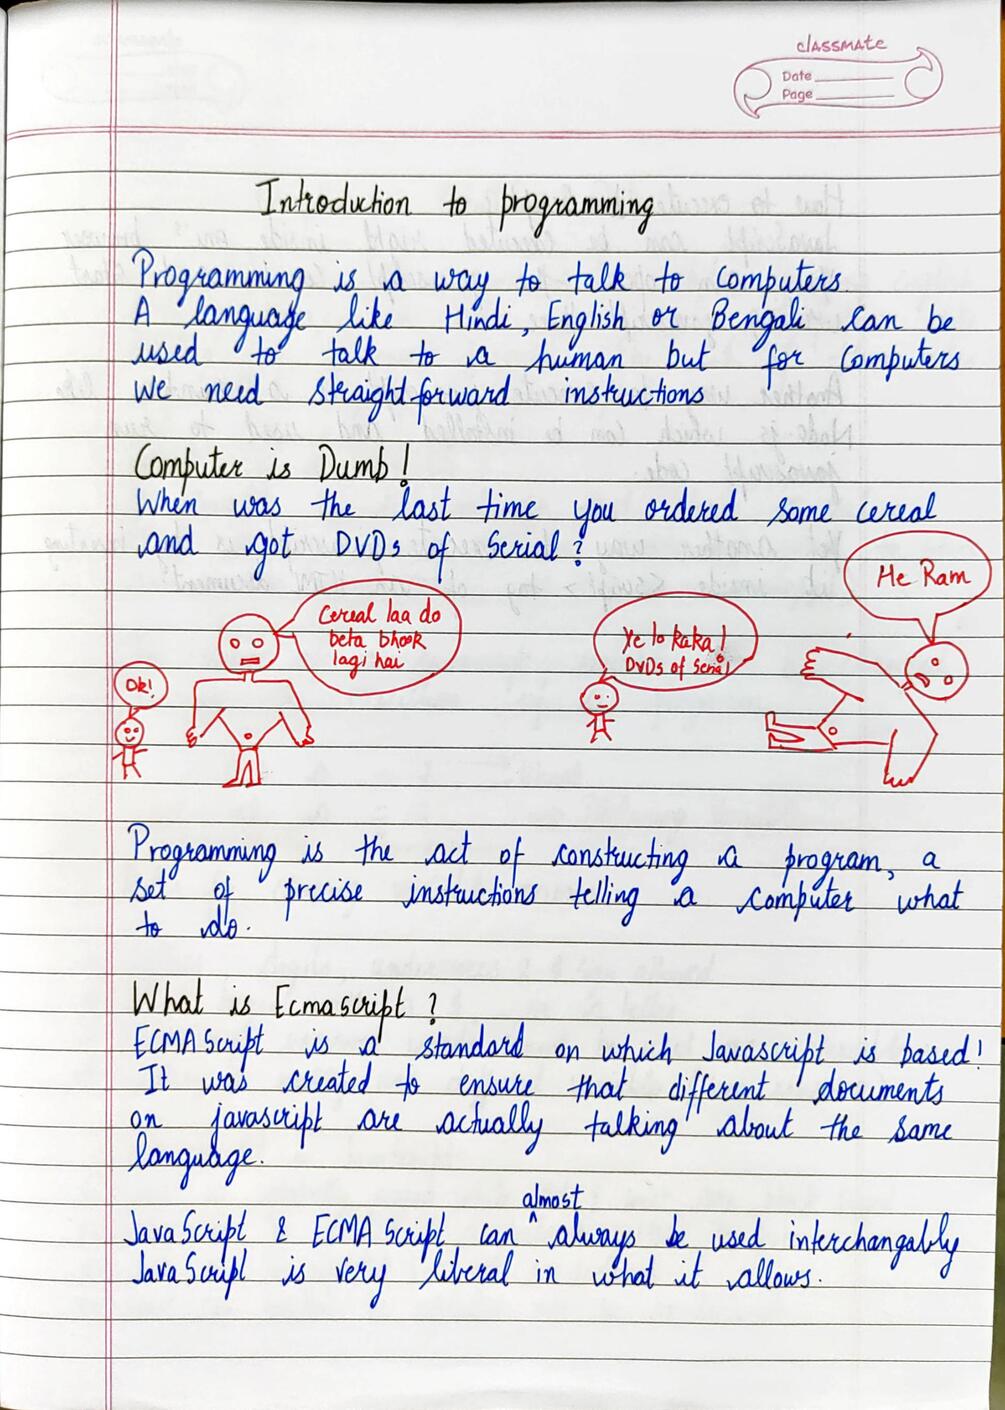 classmate
Date
Page
Introduction to programming
Programming is a way to talk to computers.
A language like Hindi, English or Bengali can be
used to talk to a human but for computers
we need straightforward instructions
Computer is Dumb!
When was the last time you ordered some cereal
and got DVDs of serial?
He Ram
Cereal laa do
beta bhook
lagi hai
Ye lo kaka!
DVDs of serial
Ok!
Programming is the act of constructing a program, a
set of precise instructions telling a computer what
to do.
What is Ecmascript?
ECMAScript is a standard on which Javascript is based!
It was created to ensure that different documents
on javascript are actually talking about the same
language.
almost
JavaScript & ECMA Script can ^ always be used interchangably
JavaScript is very liberal in what it allows.